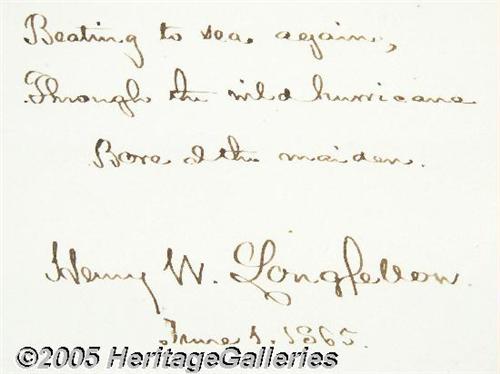 Beating to sea again,
Through the wild hurricane
Bore I the maiden.
Henry W. Longfellow
June 1. 1865.
©2005 HeritageGalleries